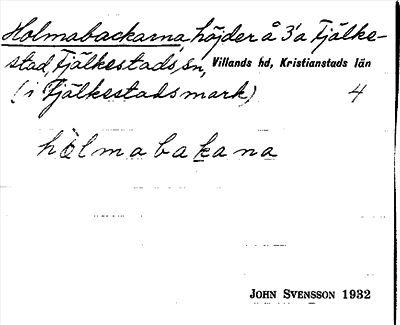 Holmabackarna, höjder å 3'a Fjälke-
stad, Fjälkestads sn, Villands hd, Kristianstads län
(i Fjälkestads mark) 4
hòlmabakana
JOHN SVENSSON 1932